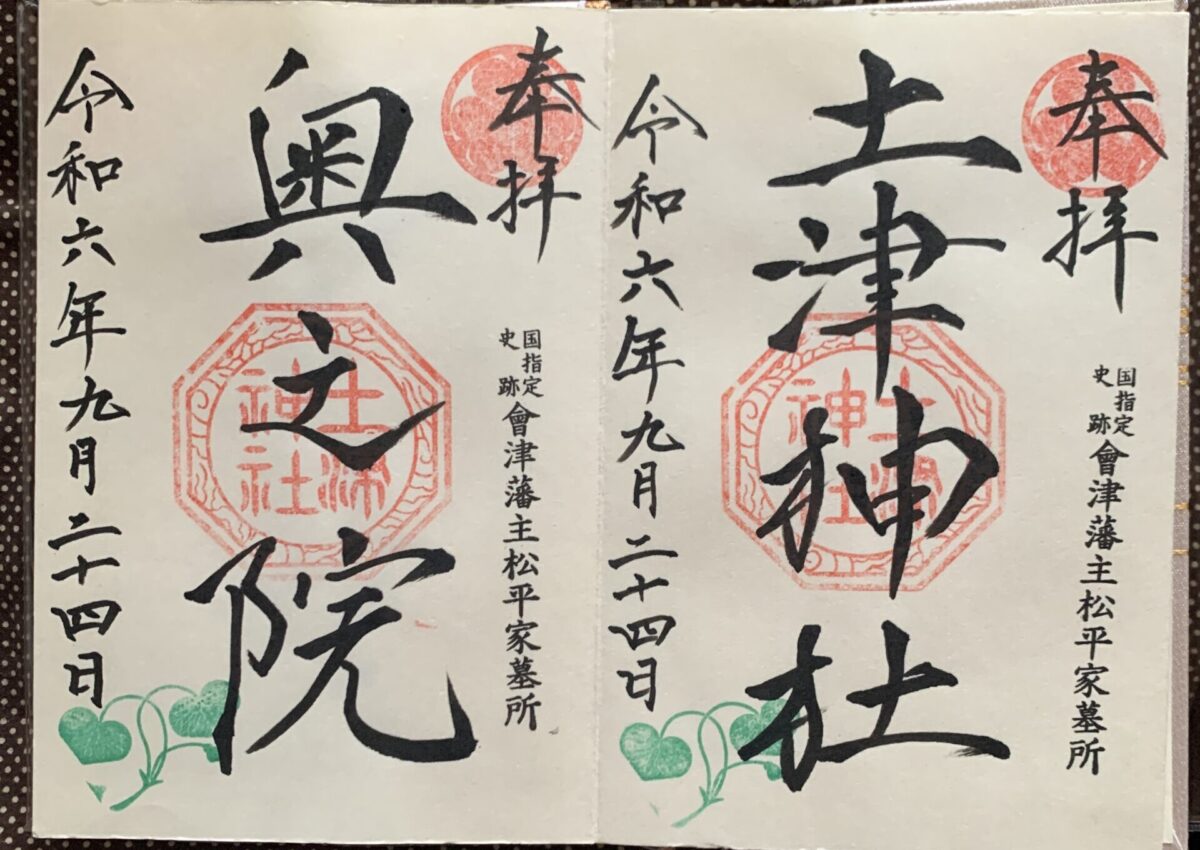 奉拝
国指定
史跡
會津藩主松平家墓所
土津神社
土津
神社
令和六年九月二十四日
奉拝
国指定
史跡
會津藩主松平家墓所
奥之院
土津
神社
令和六年九月二十四日